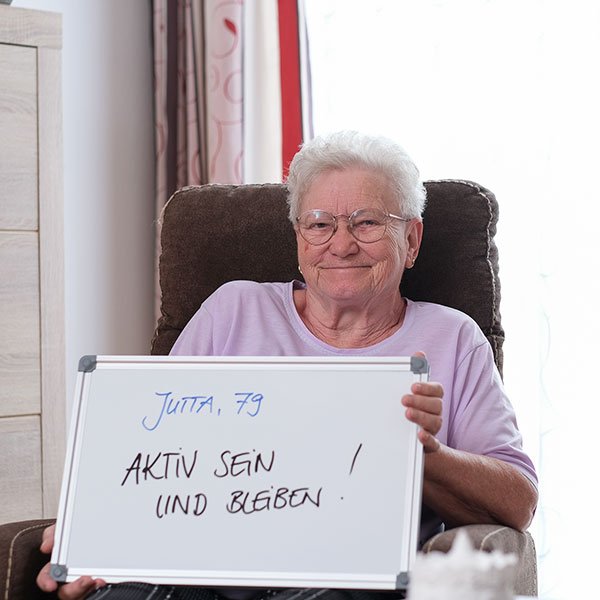 JUTTA, 79
AKTIV SEIN
UND BLEIBEN !